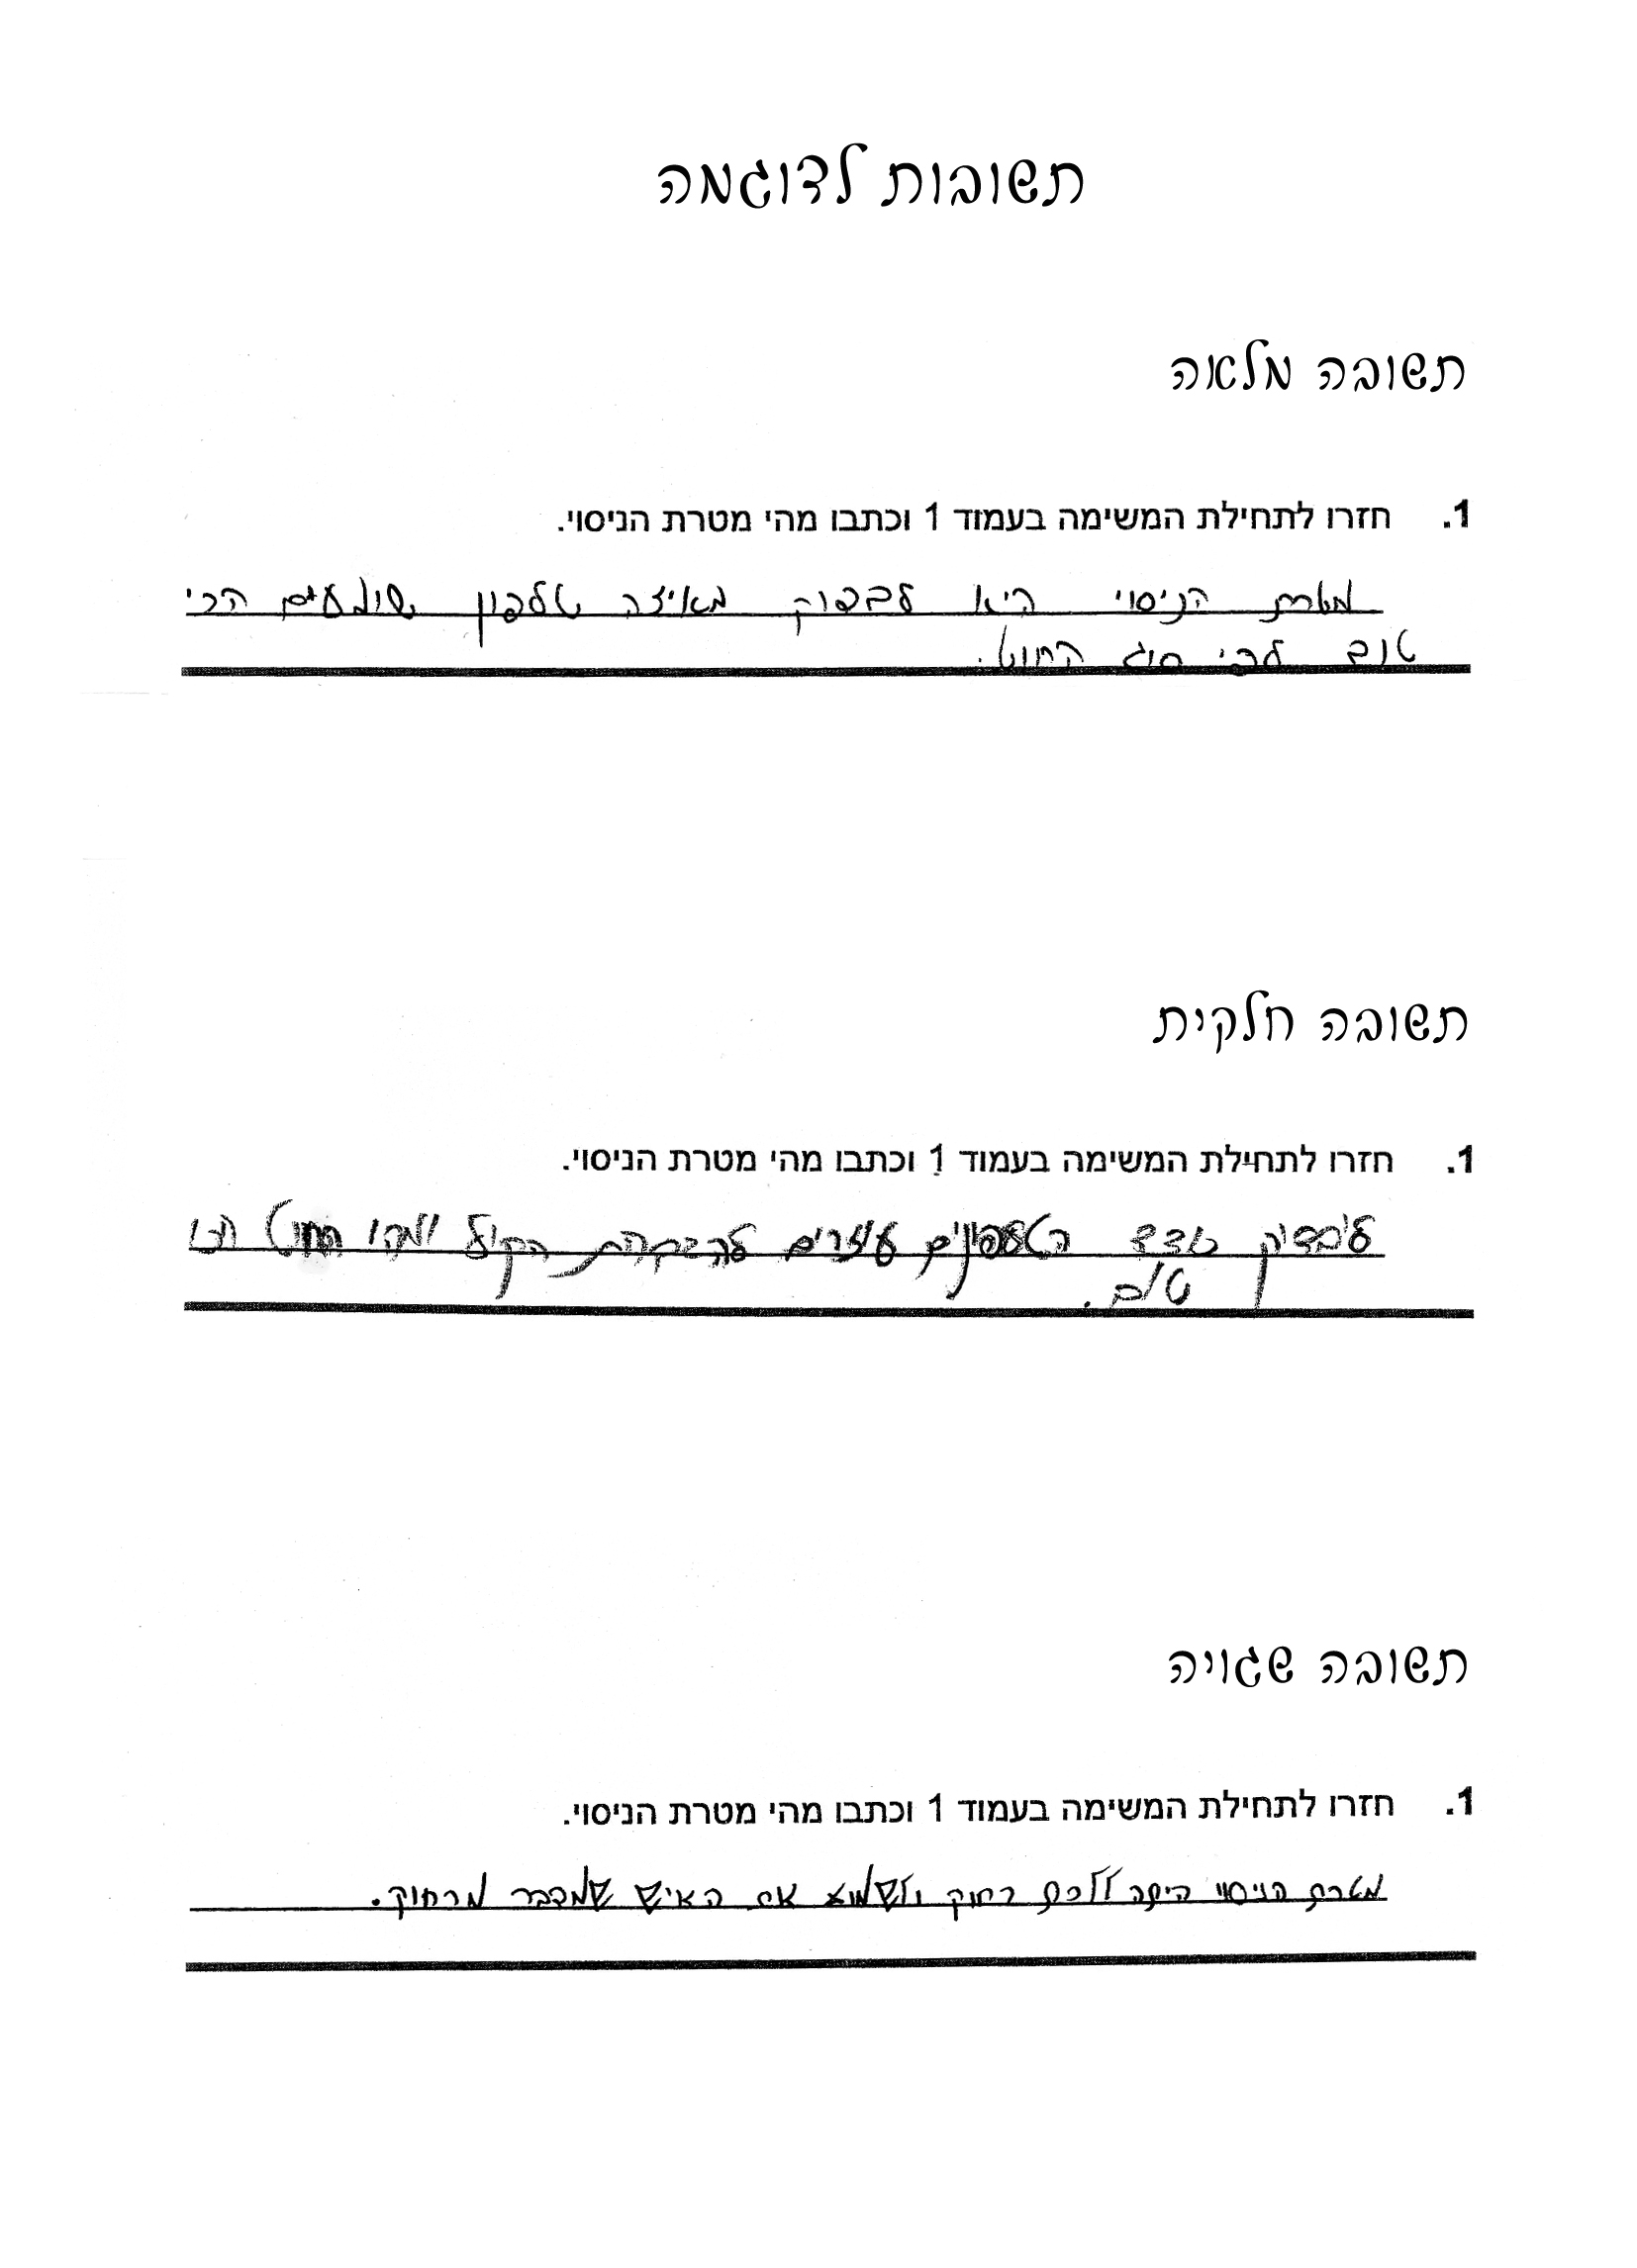 תשובות לדוגמה
תשובה מלאה
1. חזרו לתחילת המשימה בעמוד 1 וכתבו מהי מטרת הניסוי.
מטרת הניסוי היא לבדוק מאיזה טלפון שומעים הכי
טוב לפי סוג החוט.
תשובה חלקית
1. חזרו לתחילת המשימה בעמוד 1 וכתבו מהי מטרת הניסוי.
לבדוק כצד הטלפונים עוזרים להברת הקול ומהו החוט הכי
טוב.
תשובה שגויה
1. חזרו לתחילת המשימה בעמוד 1 וכתבו מהי מטרת הניסוי.
מטרת הניסוי היתה ללכת רחוק ולשמוע את האיש שמדבר מרחוק.